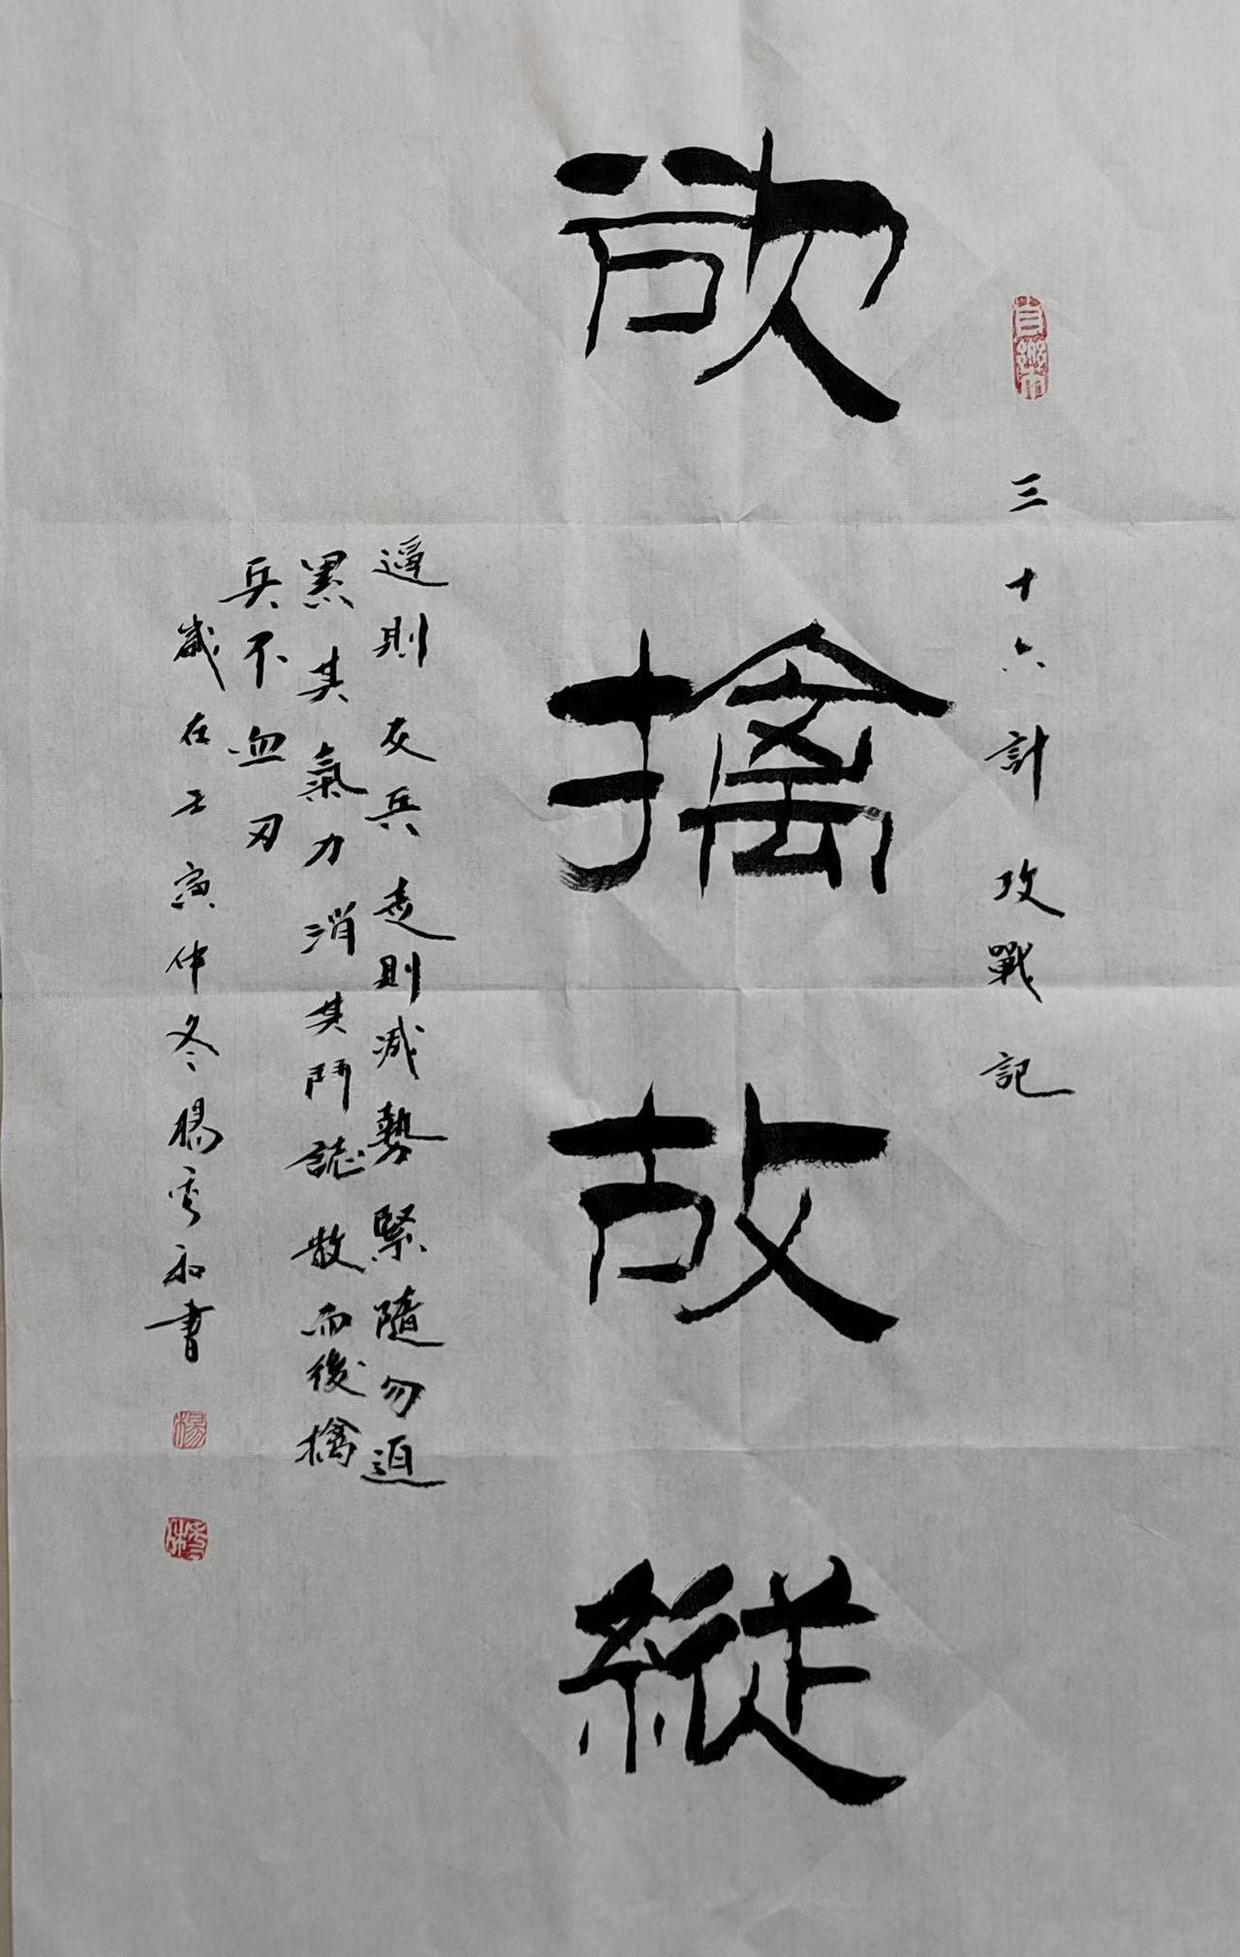 自樂
三十六計 攻戰記
欲擒故縱
逼則灰兵走則減勢緊隨勿迫
黑其氣力消其鬥誌散而後擒
兵不血刃
歲在壬寅仲冬楊和書
楊